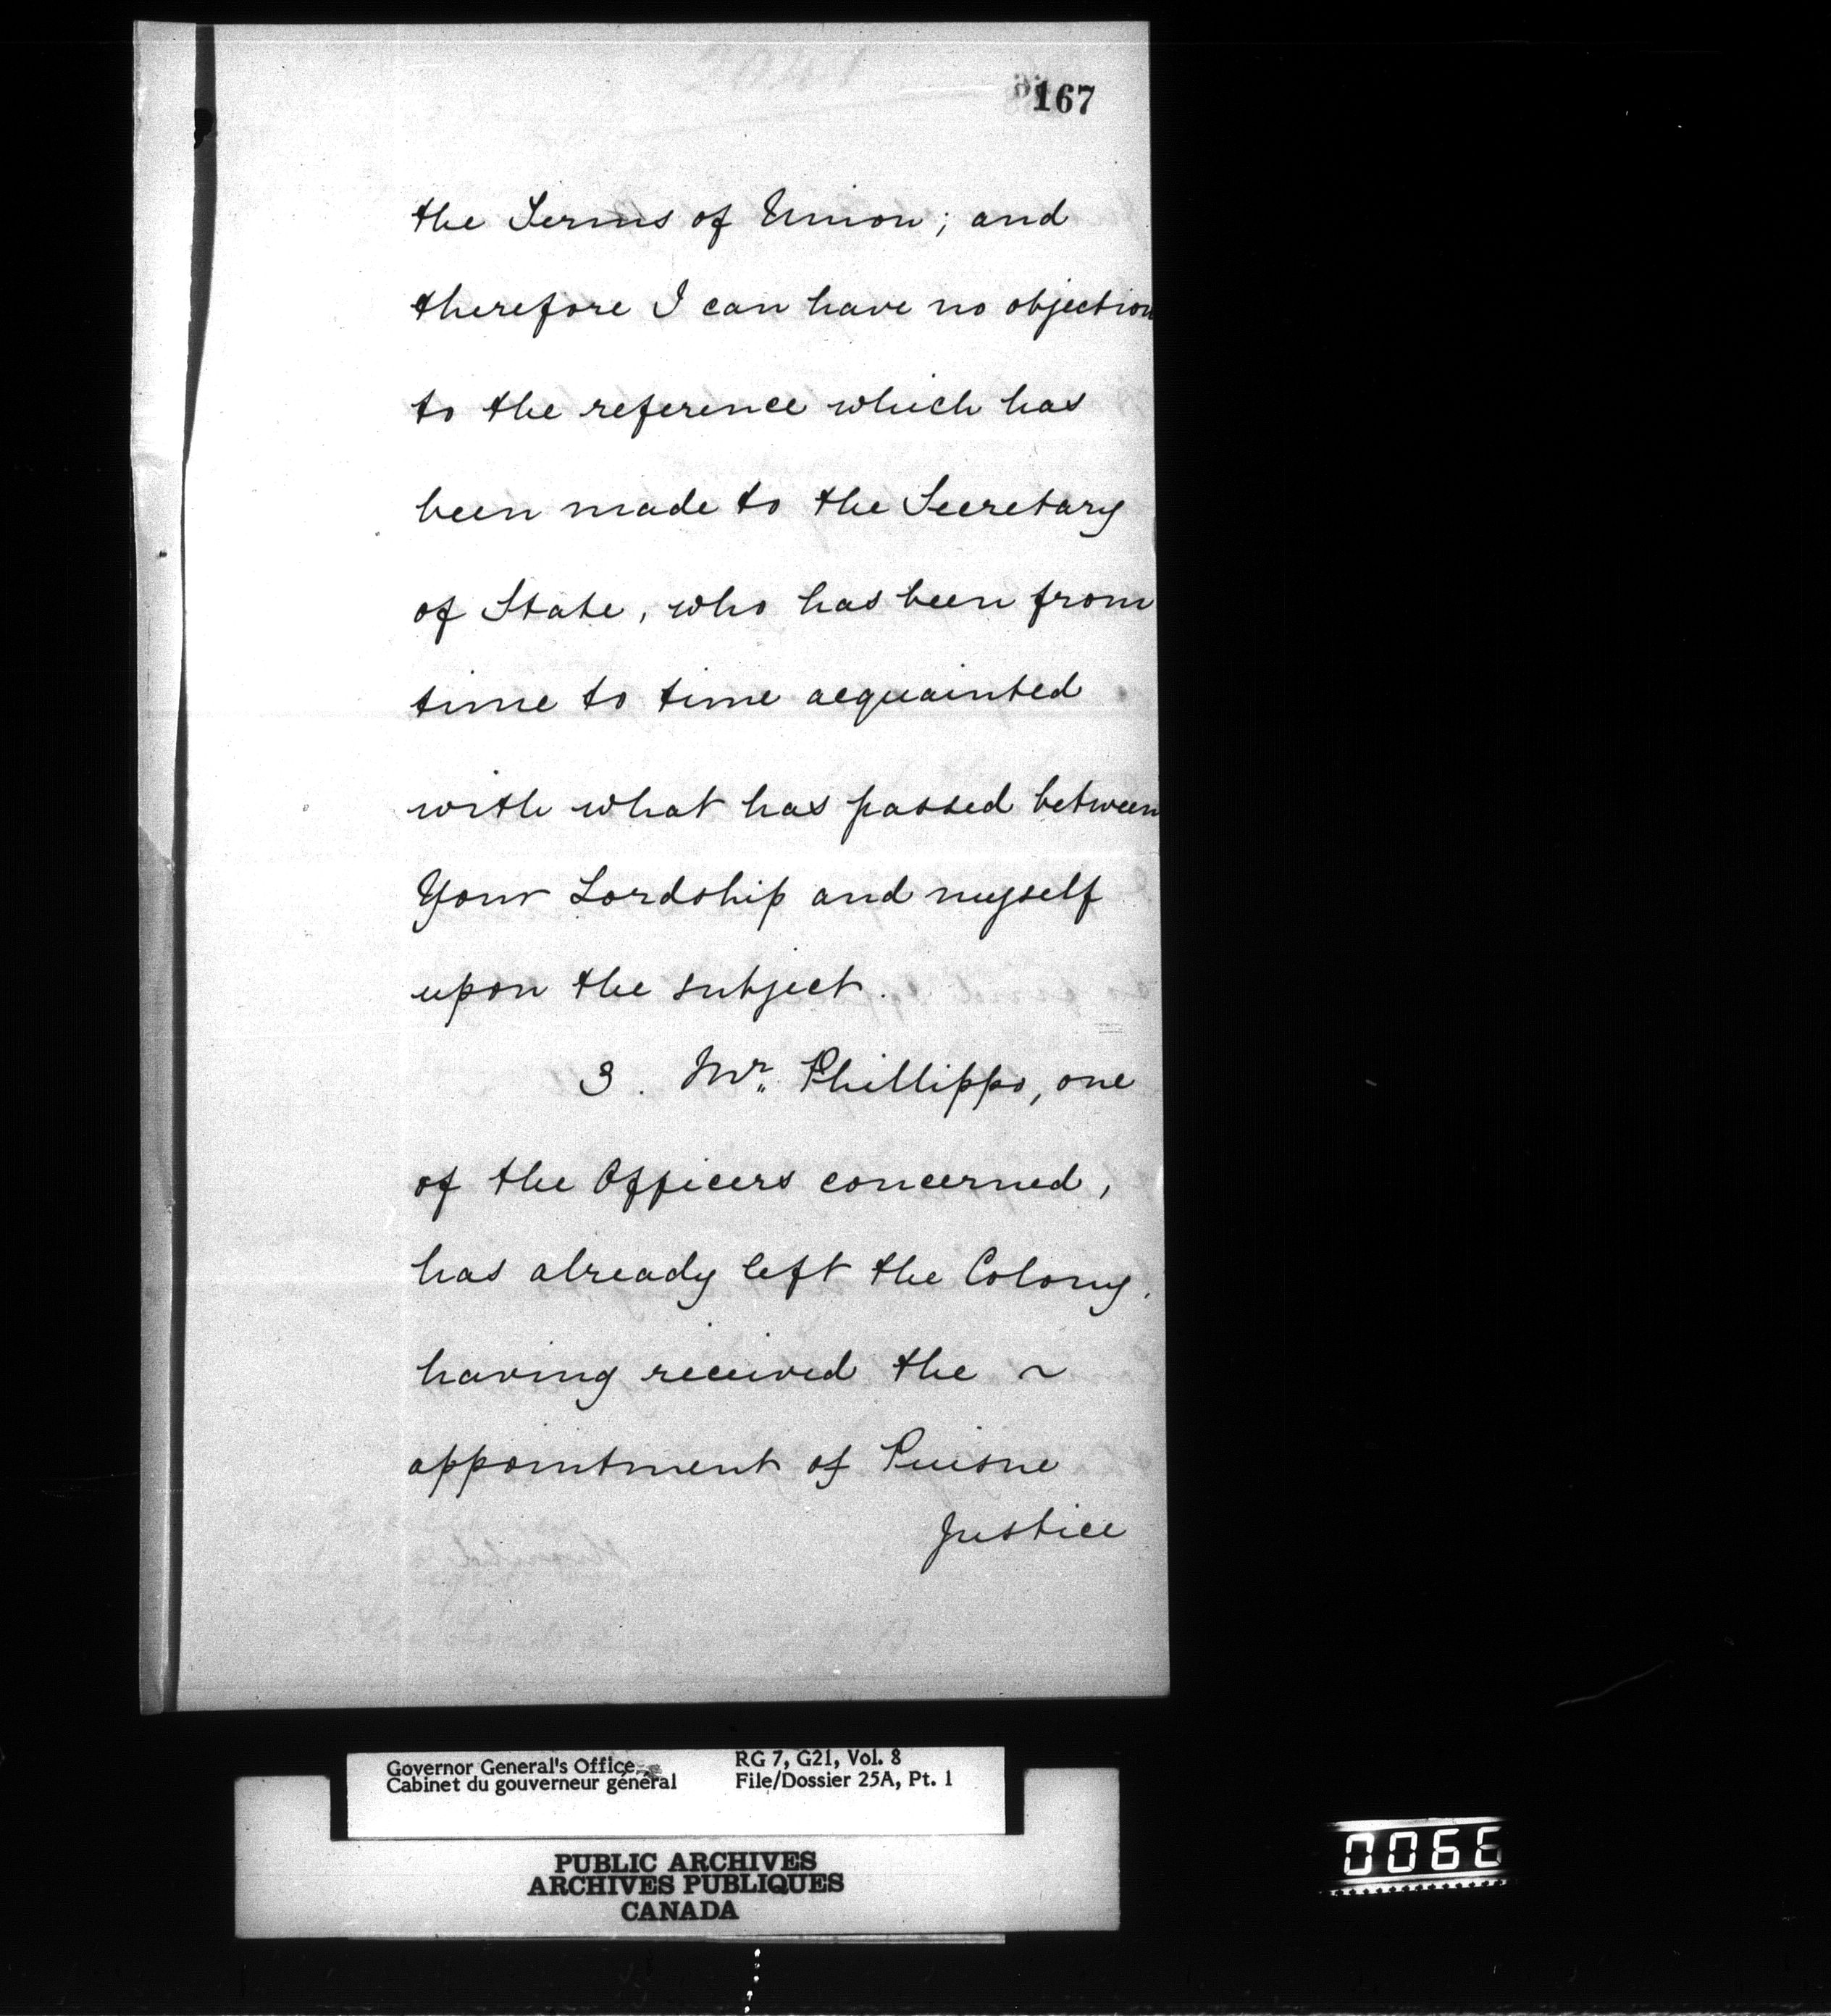 167
the Terms of Union; and
therefore I can have no objection
to the reference which has
been made to the Secretary
of State, who has been from
time to time acquainted
with what has passed between
Your Lordship and myself
upon the subject.
3. Mr. Phillippo, one
of the Officers concerned,
has already left the Colony,
having received the ~
appointment of Puisne
Justice
Governor General's Office
Cabinet du gouverneur général
RG 7, G21, Vol. 8
File/Dossier 25A, Pt. 1
PUBLIC ARCHIVES
ARCHIVES PUBLIQUES
CANADA